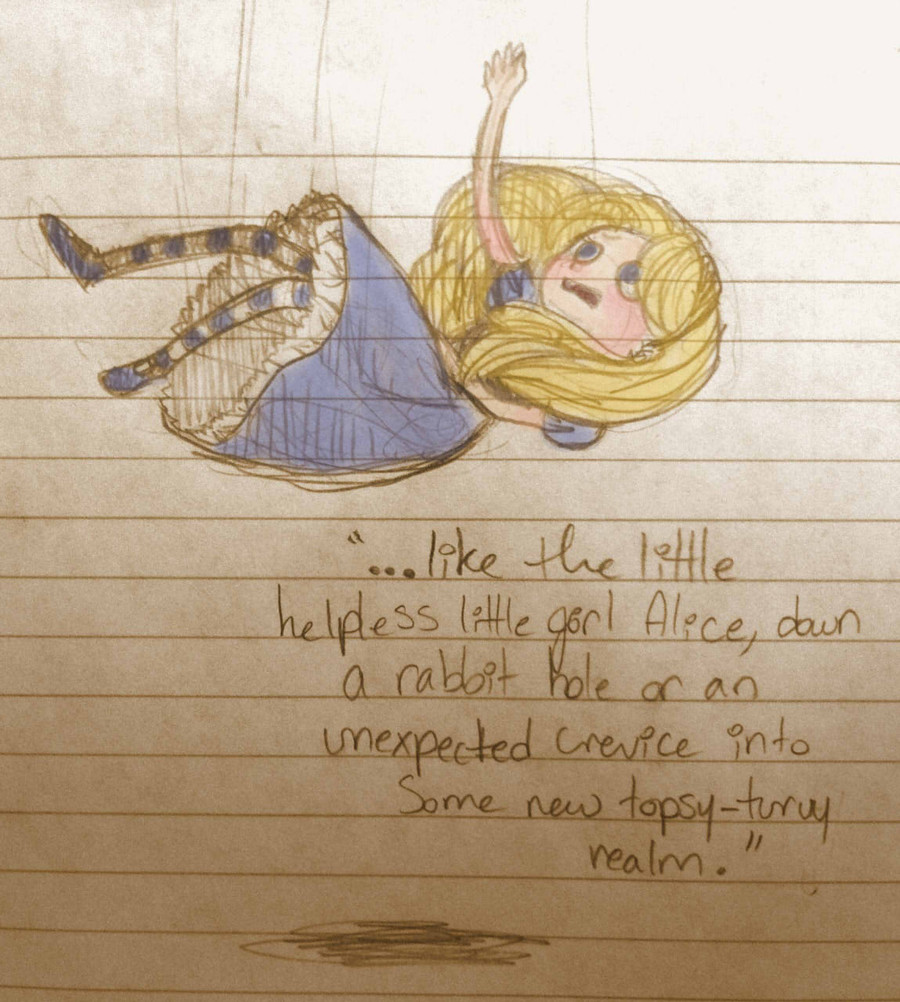 "...like the little
helpless little girl Alice, down
a rabbit hole or an
unexpected crevice into
Some new topsy-turvy
realm."